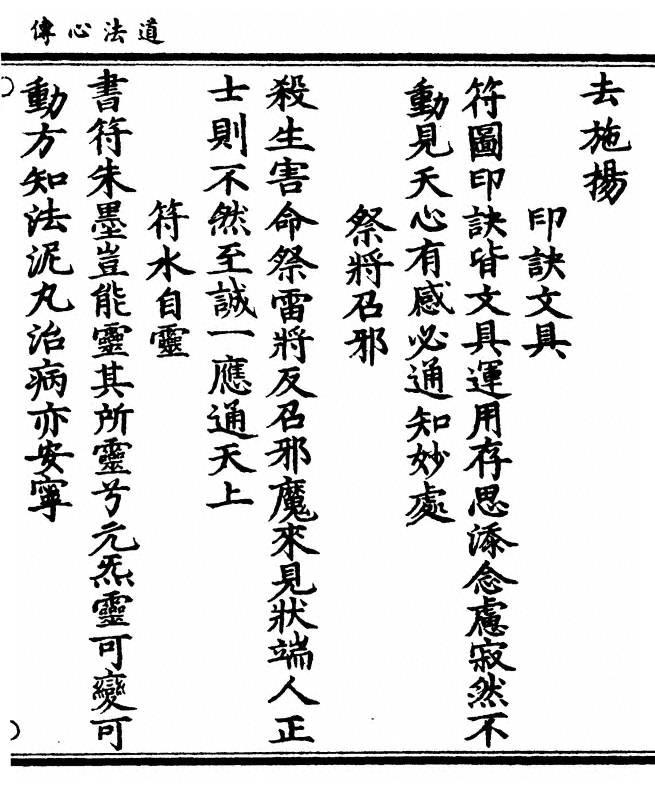 道法心傳
去施揚
印訣文具
符圖印訣皆文具運用存思添念慮寂然不
動見天心有感必通知妙處
祭將召邪
殺生害命祭雷將反召邪魔來見狀端人正
士則不然至誠一應通天上
符水自靈
書符朱墨豈能靈其所靈兮元炁靈可變可
動方知法泥丸治病亦安寧